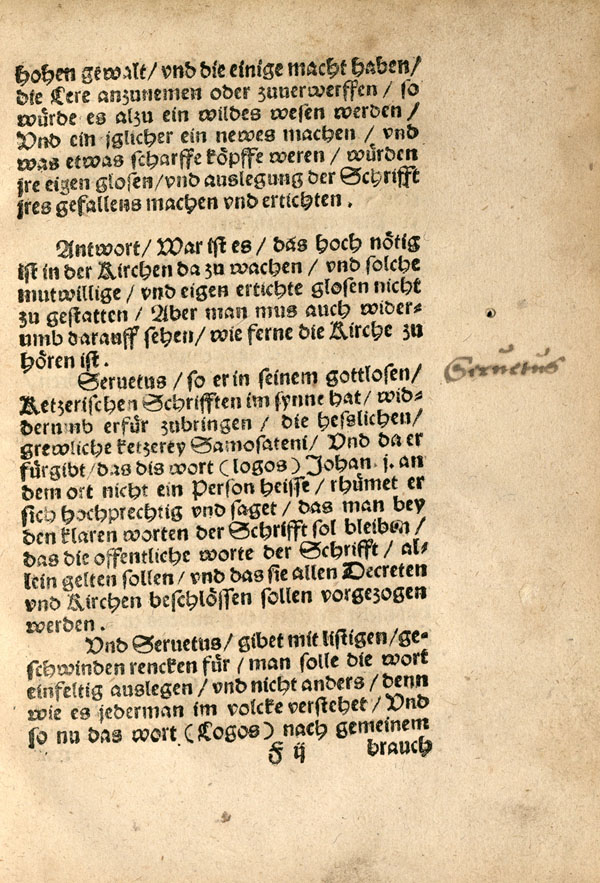 hohen gewalt / vnd die einige macht haben /
die Lere anzunemen oder zuuerwerffen / so
würde es alzu ein wildes wesen werden /
Vnd ein jglicher ein newes machen / vnd
was etwas scharffe köpffe weren / würden
jre eigen glosen / vnd auslegung der Schrifft
jres gefallens machen vnd ertichten .
Antwort / War ist es / das hoch nötig
ist in der Kirchen da zu wachen / vnd solche
mutwillige / vnd eigen ertichte glosen nicht
zu gestatten / Aber man mus auch wider-
umb darauff sehen / wie ferne die Kirche zu
hören ist .
Seruetus / so er in seinem gottlosen /
Ketzerischen Schrifften im synne hat / wid-
derumb erfür zubringen / die hesslichen /
grewliche ketzerey Samosateni / Vnd da er
fürgibt / das dis wort (logos) Johan . j . an
dem ort nicht ein Person heisse / rhümet er
sich hochprechtig vnd saget / das man bey
den klaren worten der Schrifft sol bleiben /
das die offentliche worte der Schrifft / al-
lein gelten sollen / vnd das sie allen Decreten
vnd Kirchen beschlössen sollen vorgezogen
werden .
Vnd Seruetus / gibet mit listigen / ge-
schwinden rencken für / man solle die wort
einfeltig auslegen / vnd nicht anders / denn
wie es jederman im volcke verstehet / Vnd
so nu das wort (Logos) nach gemeinem
F ij brauch
Seruetus